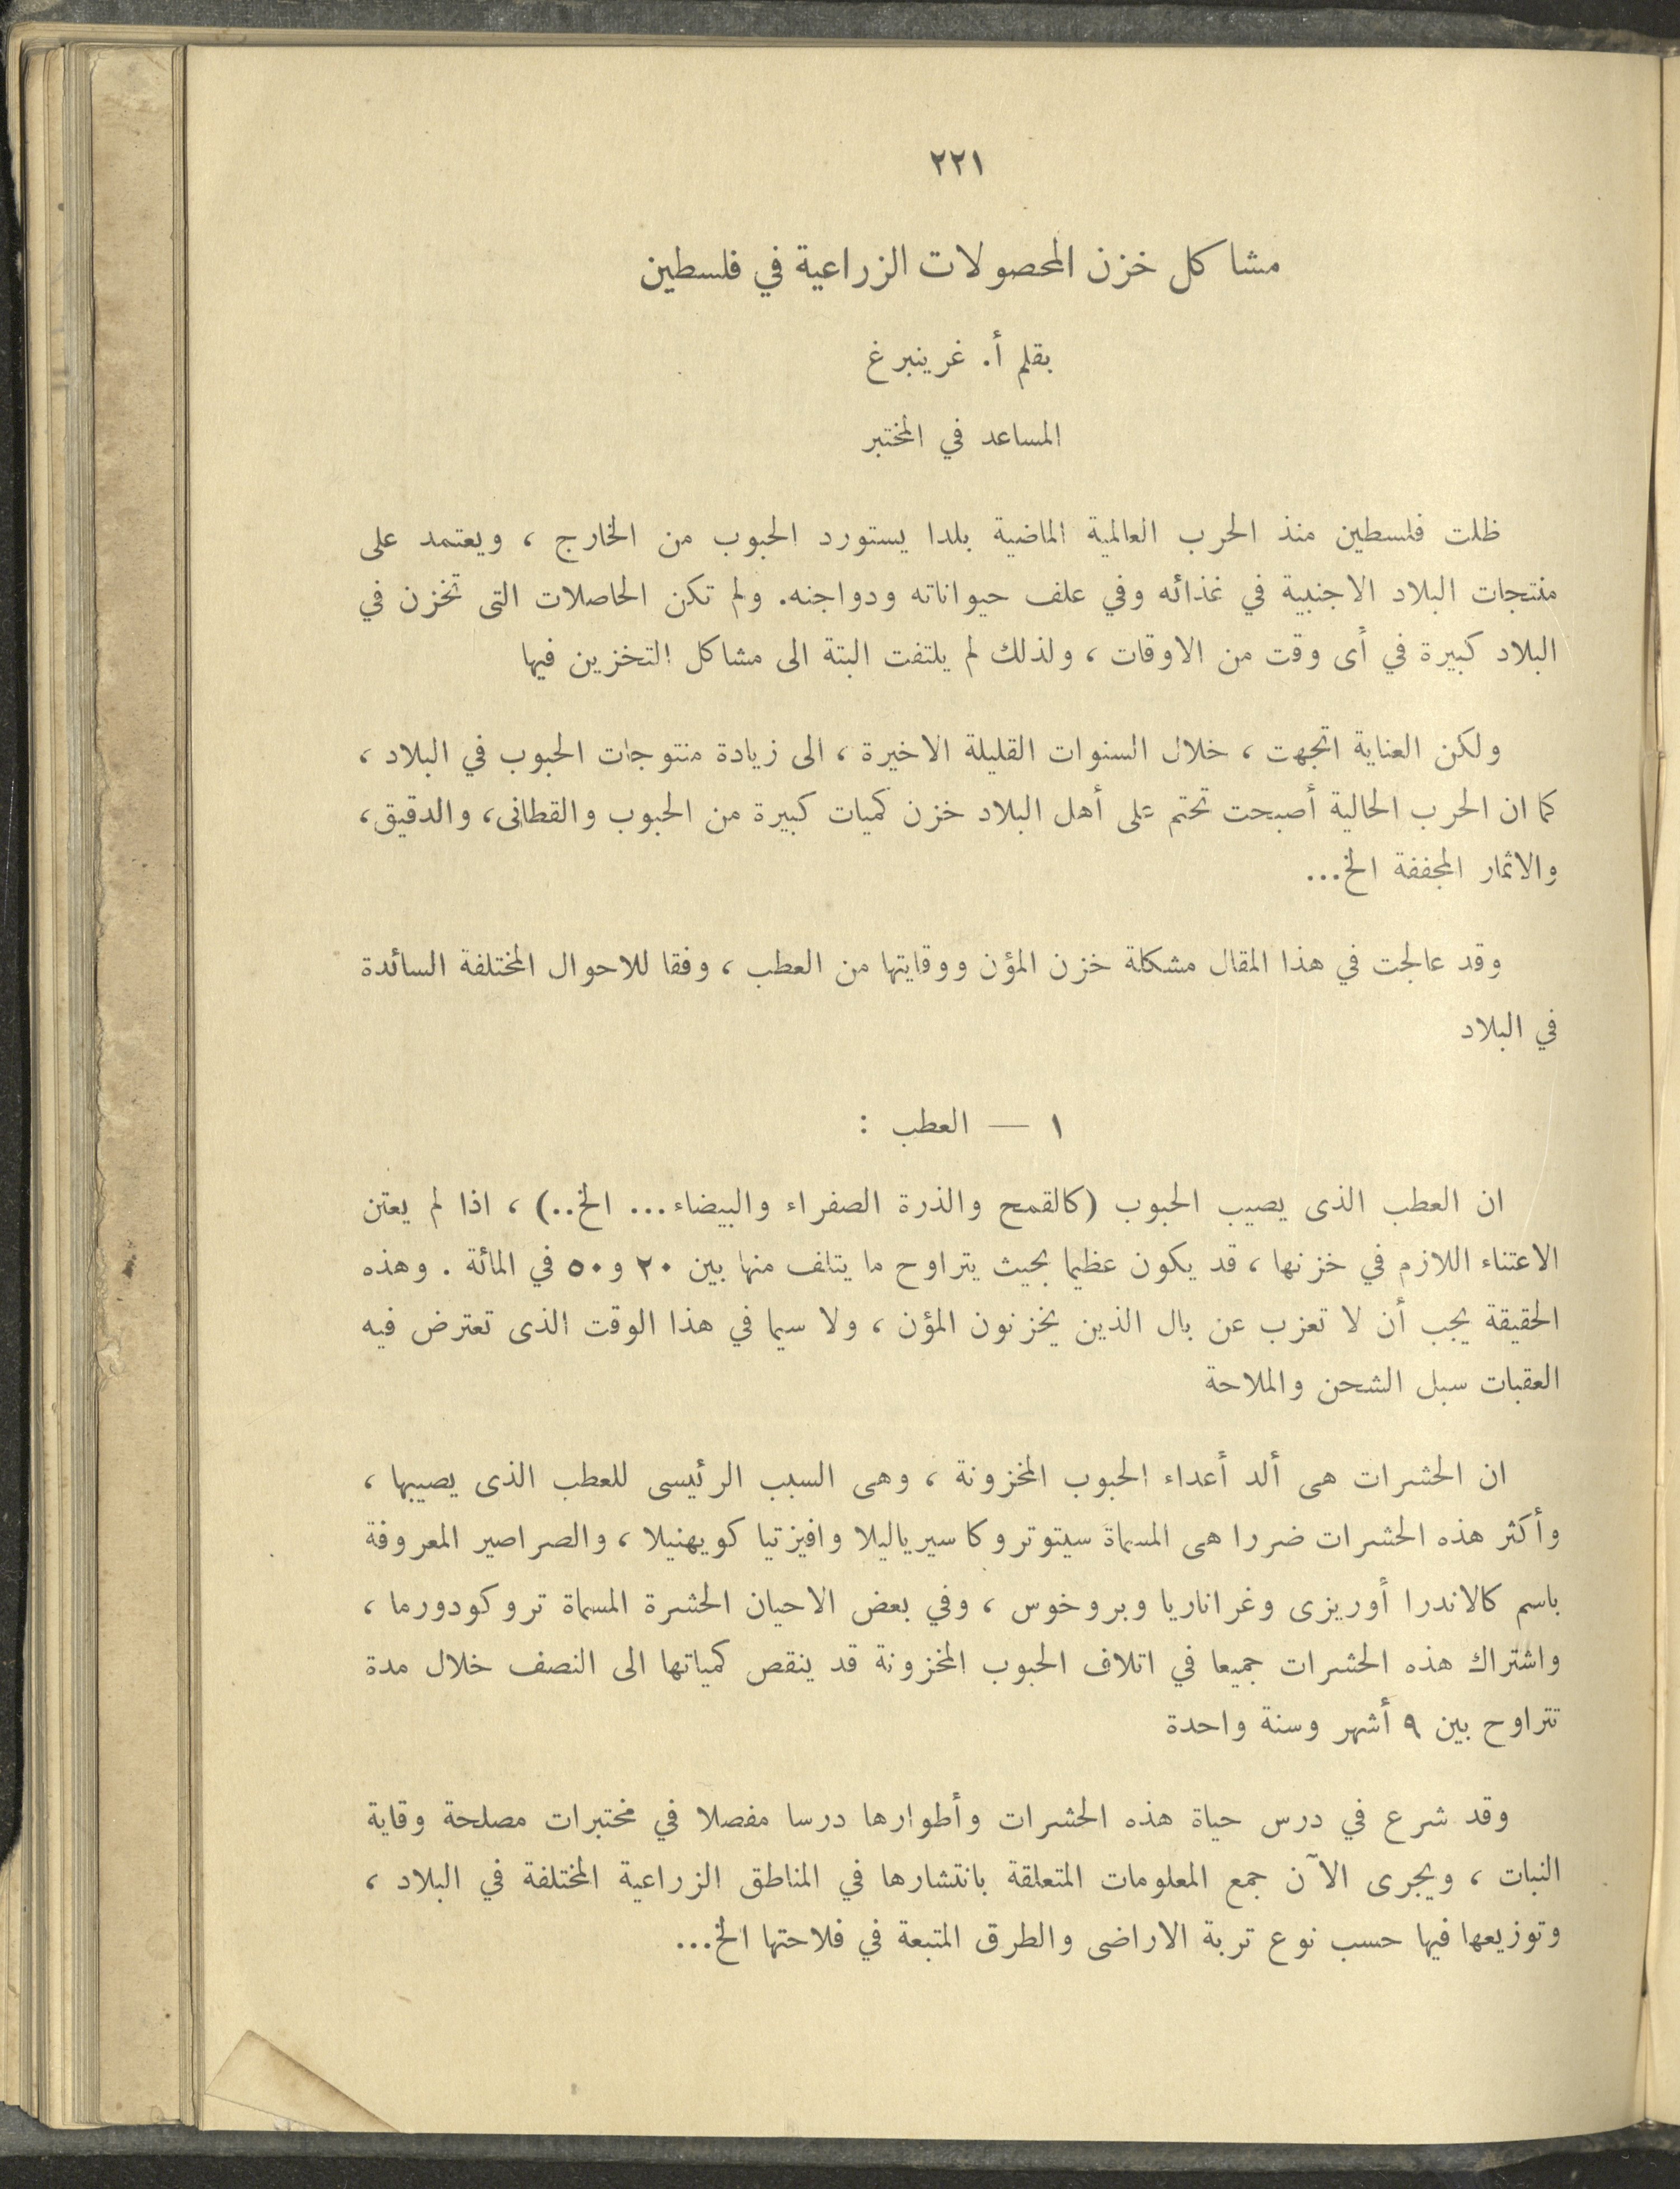 ٢٢١
مشاكل خزن المحصولات الزراعية في فلسطين
بقلم أ. غرينبرغ
المساعد في المختبر
ظلت فلسطين منذ الحرب العالمية الماضية بلدا يستورد الحبوب من الخارج ، ويعتمد على
منتجات البلاد الاجنبية في غذائه وفي علف حيواناته ودواجنه. ولم تكن الحاصلات التى تخزن في
البلاد كبيرة في أى وقت من الاوقات ، ولذلك لم يلتفت البتة الى مشاكل التخزين فيها
ولكن العناية اتجهت ، خلال السنوات القليلة الاخيرة ، الى زيادة منتوجات الحبوب في البلاد ،
كما ان الحرب الحالية أصبحت تحتم على أهل البلاد خزن كميات كبيرة من الحبوب والقطانى، والدقيق،
والاثمار المجففة الخ...
وقد عالجت في هذا المقال مشكلة خزن المؤن ووقايتها من العطب ، وفقا للاحوال المختلفة السائدة
في البلاد
١ — العطب :
ان العطب الذى يصيب الحبوب (كالقمح والذرة الصفراء والبيضاء... الخ..) ، اذا لم يعتن
الاعتناء اللازم في خزنها ، قد يكون عظيما بحيث يتراوح ما يتلف منها بين ٢٠ و٥٠ في المائة . وهذه
الحقيقة يجب أن لا تعزب عن بال الذين يخزنون المؤن ، ولا سيما في هذا الوقت الذى تعترض فيه
العقبات سبل الشحن والملاحة
ان الحشرات هى ألد أعداء الحبوب المخزونة ، وهى السبب الرئيسى للعطب الذى يصيبها ،
وأكثر هذه الحشرات ضررا هى المسماة سيتوتروكا سيرياليلا وافيزتيا كويهنيلا ، والصراصير المعروفة
باسم كالاندرا أوريزى وغراناريا وبروخوس ، وفي بعض الاحيان الحشرة المسماة تروكودورما ،
واشتراك هذه الحشرات جميعا في اتلاف الحبوب المخزونة قد ينقص كمياتها الى النصف خلال مدة
تتراوح بين ٩ أشهر وسنة واحدة
وقد شرع في درس حياة هذه الحشرات وأطوارها درسا مفصلا في مختبرات مصلحة وقاية
النبات ، ويجرى الآن جمع المعلومات المتعلقة بانتشارها في المناطق الزراعية المختلفة في البلاد ،
وتوزيعها فيها حسب نوع تربة الاراضى والطرق المتبعة في فلاحتها الخ...